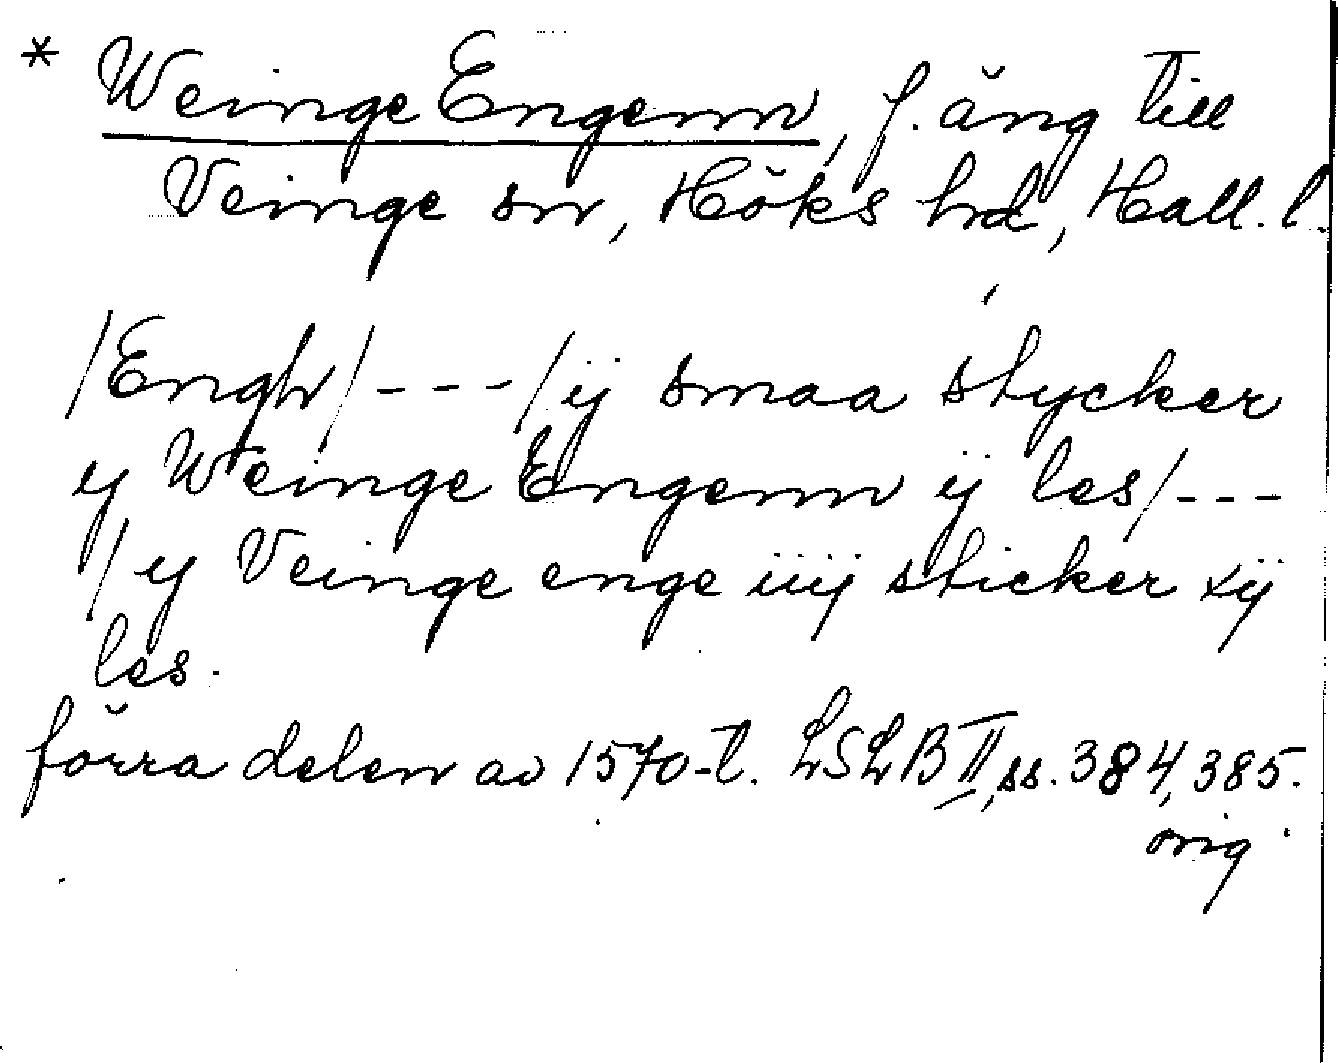 * Weinge Engenn, f. äng till
Veinge sn, Höks hd, Hall. l.
/Engh/---/ij smaa stycker
y Weinge Engenn ij les/---
/y Veinge enge iiij sticker xij
les.
förra delen av 1570-t. LSLB II, ss. 384, 385.
orig